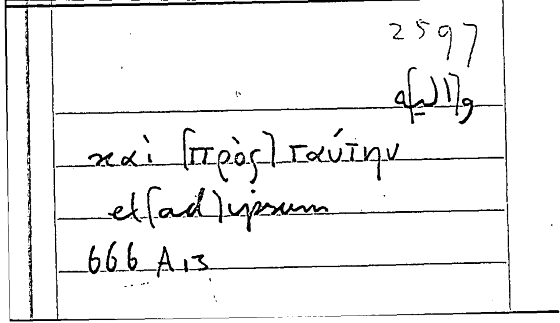 2597
καὶ [πρὸς] ταύτην
et [ad] ipsum
666 A 13